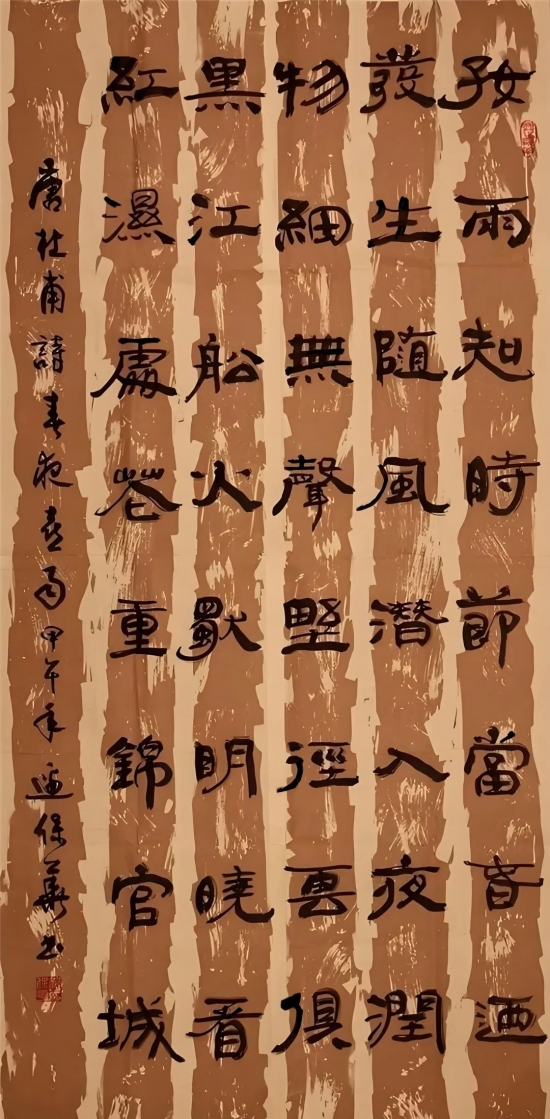 好雨知時節當旾迺
發生隨風潛入夜潤
物細無聲野徑雲俱
黑江船火獨明曉看
紅濕處花重錦官城
唐杜甫詩春夜喜雨甲午年保華书